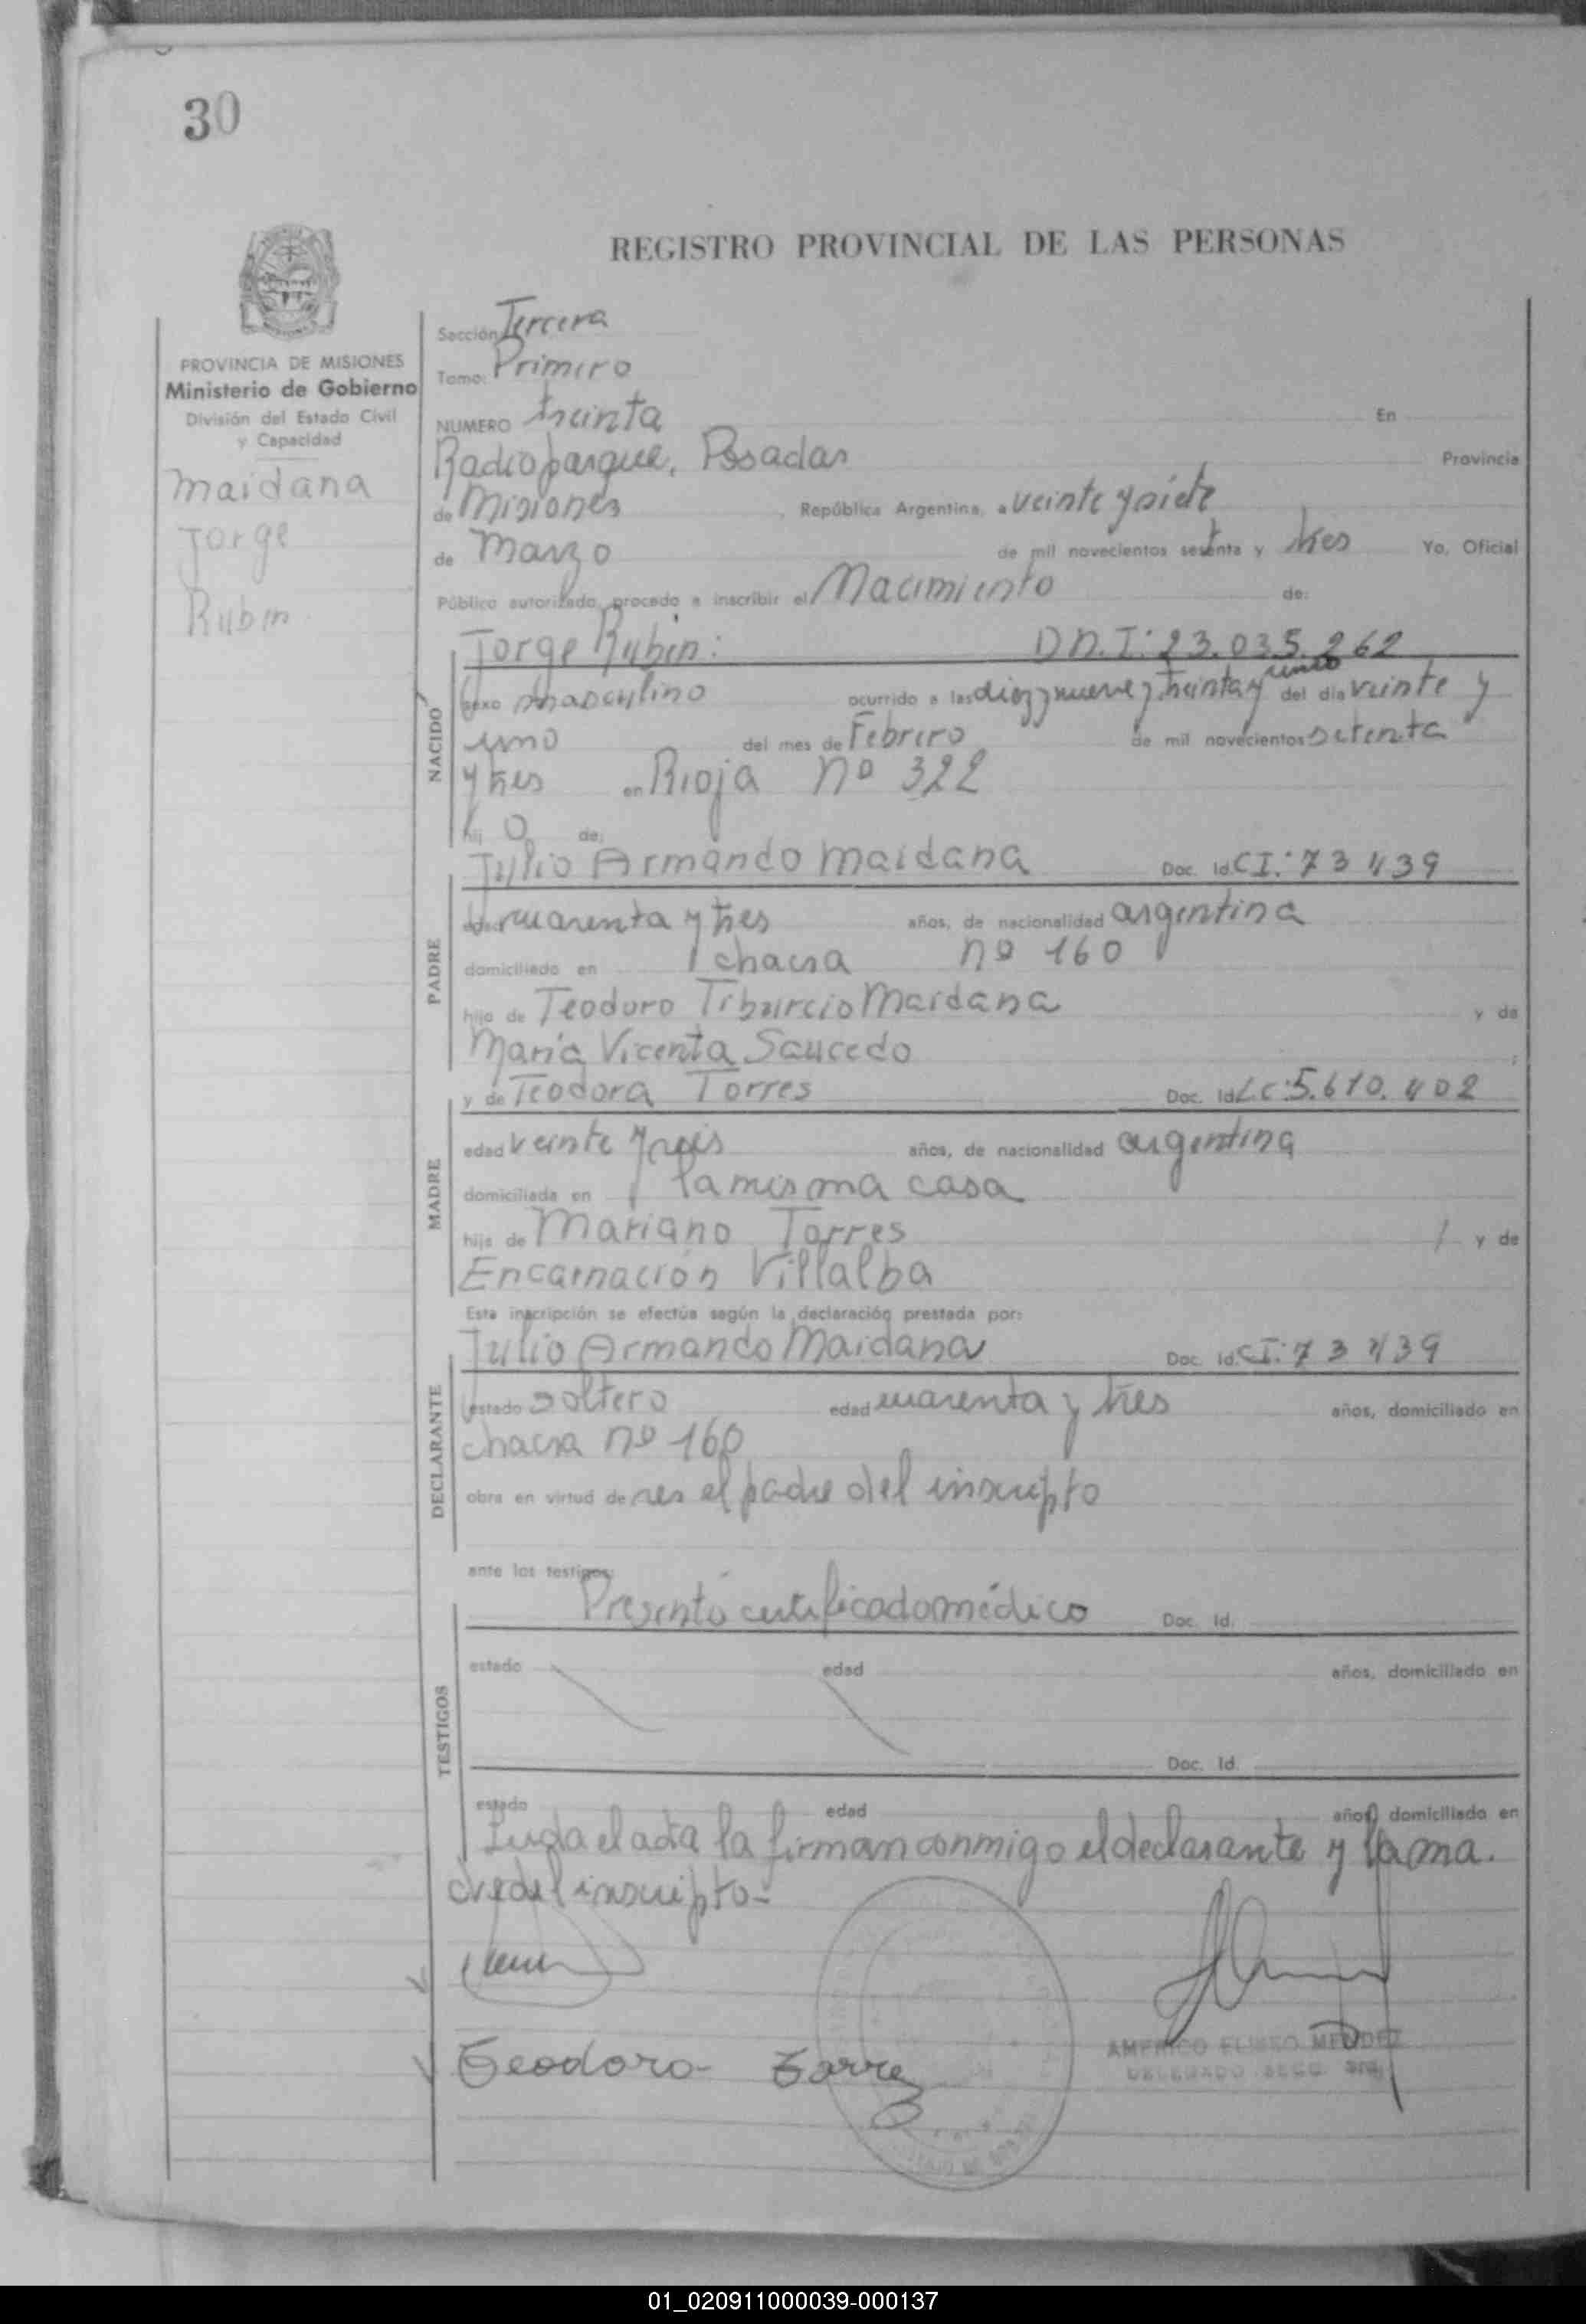 30
REGISTRO PROVINCIAL DE LAS PERSONAS
PROVINCIA DE MISIONES
Ministerio de Gobierno
División del Estado Civil
y Capacidad
Maidana
Jorge
Rubin
Sección Tercera
Tomo: Primero
NUMERO treinta En
Radioparque, Posadas Provincia
de Misiones, República Argentina, a veinte y siete
de Marzo de mil novecientos setenta y tres Yo, Oficial
Público autorizado, procedo a inscribir el Nacimiento de:
NACIDO
Jorge Rubin: D.N.I: 23.035.262
sexo masculino ocurrido a las diez y nueve y treinta y cinco del día veinte y
uno del mes de Febrero de mil novecientos setenta
y tres en Rioja nº 322
hij o de:
PADRE
Julio Armando Maidana Doc. Id. CI: 73 439
edad cuarenta y tres años, de nacionalidad argentina
domiciliado en chacra nº 160
hijo de Teodoro Tiburcio Maidana y de
María Vicenta Saucedo ;
MADRE
y de Teodora Torres Doc. Id. L.C: 5.610.402
edad veinte y seis años, de nacionalidad argentina
domiciliada en la misma casa
hija de Mariano Torres y de
Encarnación Villalba
Esta inscripción se efectúa según la declaración prestada por:
DECLARANTE
Julio Armando Maidana Doc. Id. CI: 73 439
estado soltero edad cuarenta y tres años, domiciliado en
chacra nº 160
obra en virtud de ser el padre del inscripto
ante los testigos:
TESTIGOS
Presentó certificado médico Doc. Id.
estado edad años, domiciliado en
Doc. Id.
estado edad años, domiciliado en
Leída el acta la firman conmigo el declarante y la ma.
dre del inscripto-
Teodoro- Torrez
AMERICO ELISEO MENDEZ
DELEGADO SECC. 3ra
01_020911000039-000137